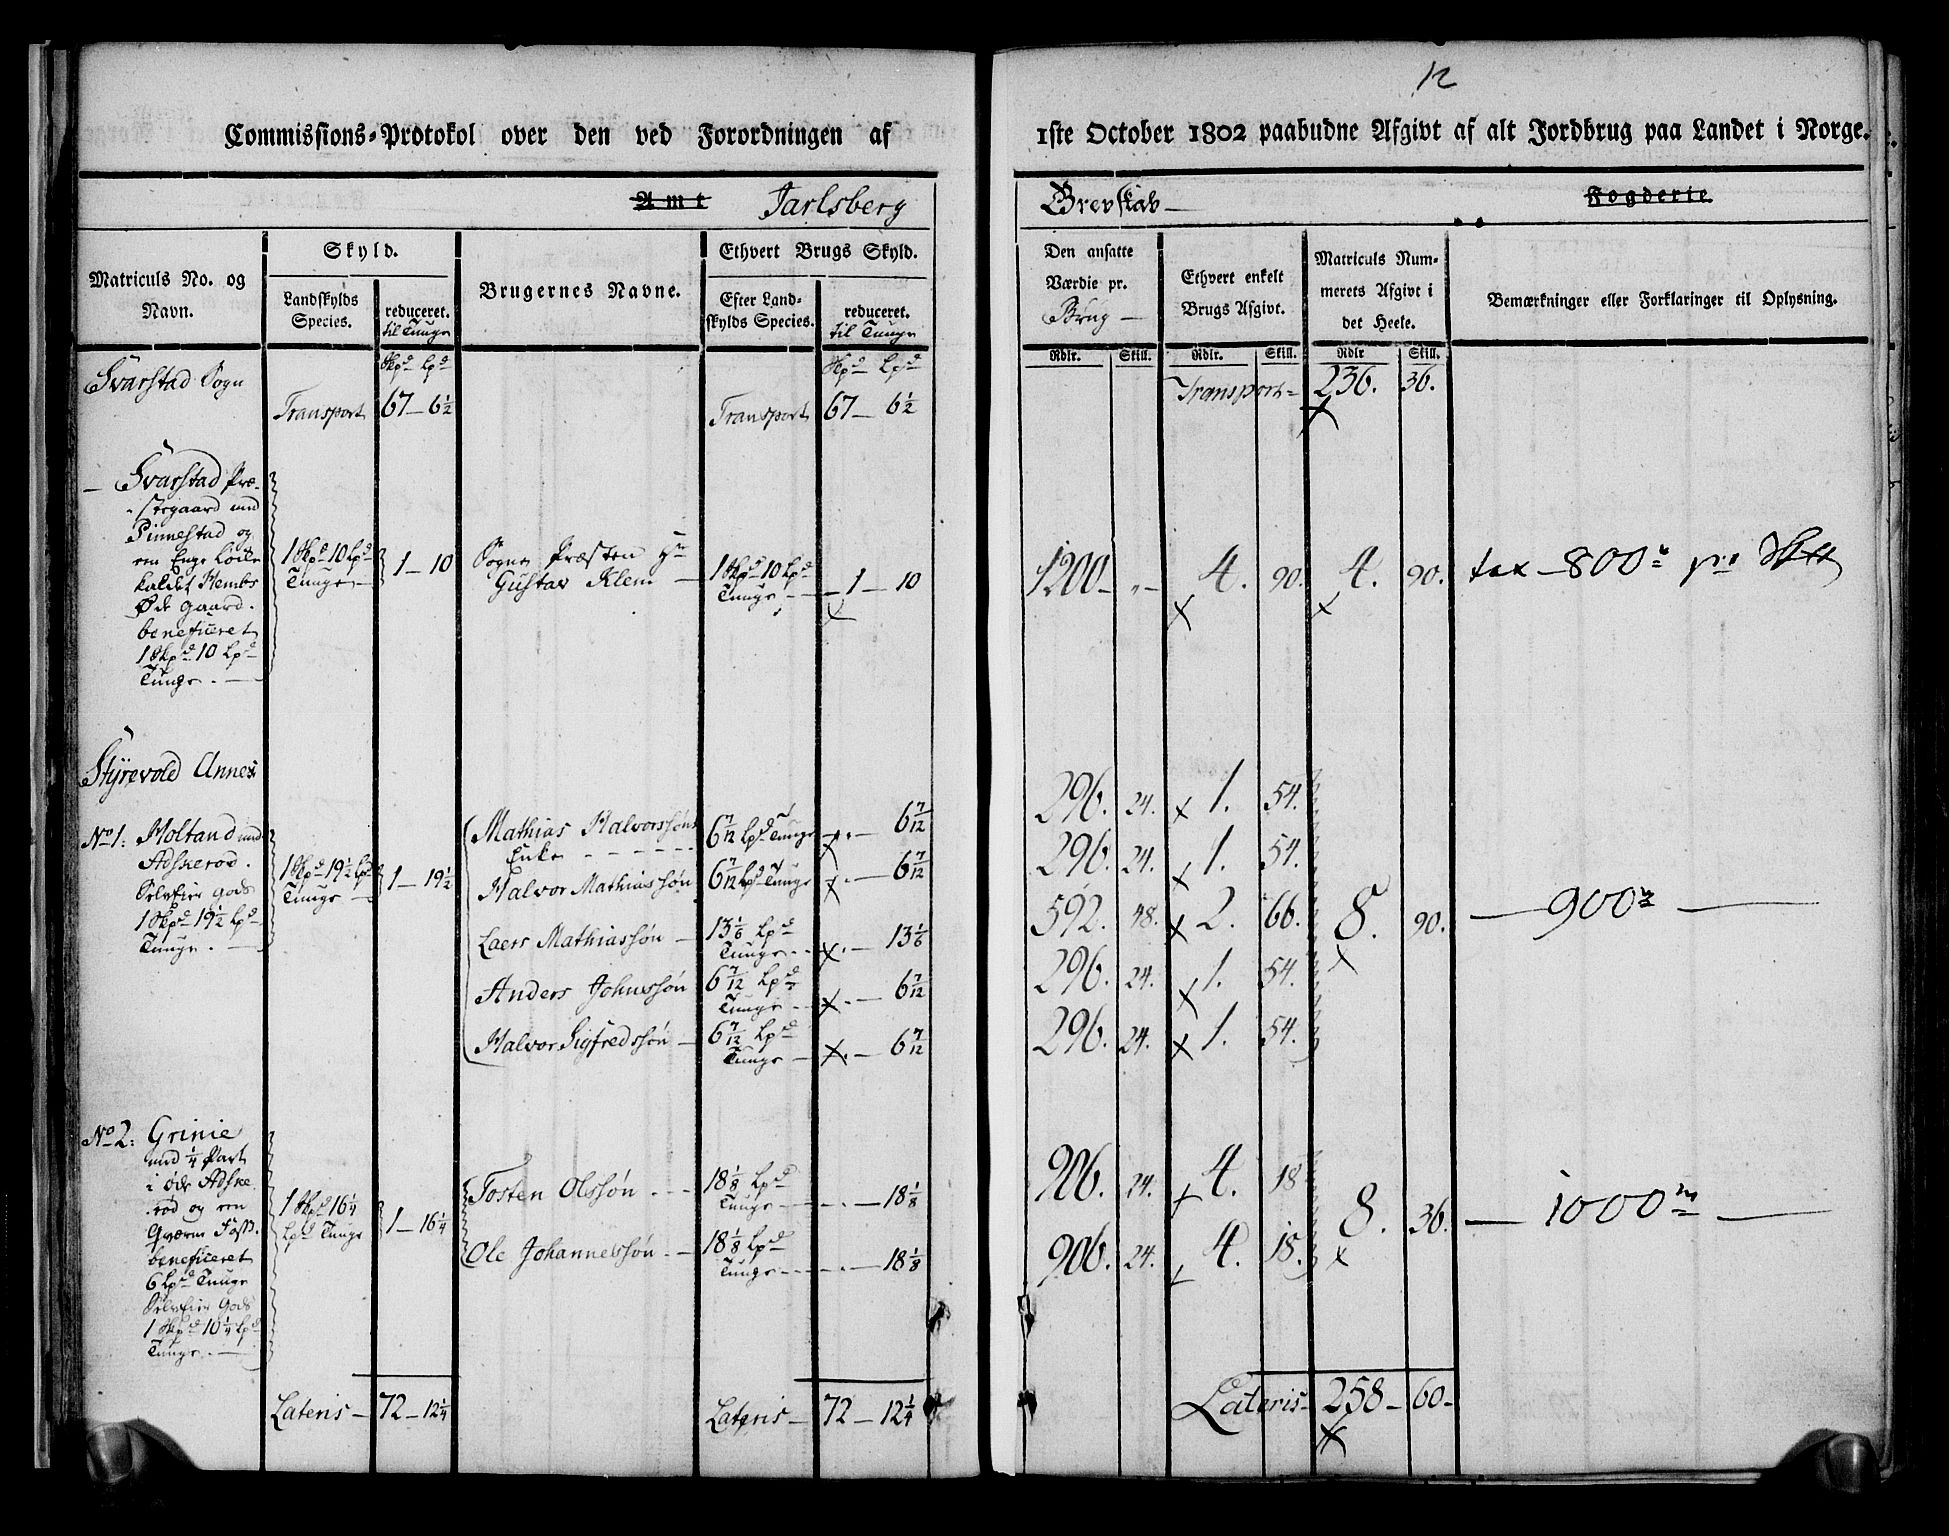 12
Commissions-Protokol over den ved Forordningen af 1ste October 1802 paabudne Afgivt af alt Jordbrug paa Landet i Norge.
Amt Jarlsberg Grevskab — Fogderie
Matriculs No. og Navn.
Skyld.
Landskylds Species.
reduceret. til Tunge
Brugernes Navne.
Ethvert Brugs Skyld.
Efter Landskylds Species.
reduceret. til Tunge
Den ansatte Værdie pr. Brug —
Ethvert enkelt Brugs Afgivt.
Matriculs Nummerets Afgivt i det Heele.
Bemærkninger eller Forklaringer til Oplysning.
Skpd Lpd Skpd Lpd Rdlr. Skill. Rdlr. Skill. Rdlr Skill.
Svarstad Sogn
Transport 67 — 6½ Transport 67 — 6½ Transport — 236. 36.
— Svarstad Præ-
stegaard med
Pinnestad og
en Enge Løcke
kaldet Kembs
Øde gaard.
beneficeret
1 Skpd 10 Lpd
Tunge. —
1 Skpd 10 Lpd
Tunge —
1 — 10
Sogne Præsten Hr
Gustav Klem —
1 Skpd 10 Lpd
Tunge —
1 — 10
1200 — „ — 4. 90. 4. 90. tax — 800 pr
Styrevold Annex
No 1: Holtan med
Adskerød.
Selveier Gods
1 Skpd 19½ Lpd
Tunge. —
1 Skpd 19½ Lpd
Tunge —
1 — 19½
Mathias Halvorssøns
Enke 6 7/12 Lpd Tunge — 6 7/12 296. 24. 1. 54.
Halvor Mathiassøn 6 7/12 Lpd Tunge — 6 7/12 296. 24. 1. 54.
Laers Mathiassøn — 13 1/6 Lpd
Tunge — 13 1/6 592. 48. 2. 66. 8. 90. — 900 —
Anders Johnssøn 6 7/12 Lpd
Tunge — 6 7/12 296. 24. 1. 54.
Halvor Sigfredssøn — 6 7/12 Lpd
Tunge — 6 7/12 296. 24. 1. 54.
No 2: Grinie
med ¼ Part
i øde Adske
rød og en
Qværne Foss.
beneficeret
6 Lpd Tunge
Selveier Gods
1 Skpd 10¼ Lpd
Tunge. —
1 Skpd 16¼
Lpd Tunge
1 — 16¼
Tosten Olssøn — 18 1/8 Lpd
Tunge — 18 1/8 906. 24. 4. 18
8. 36. — 1000 —
Ole Johannessøn — 18 1/8 Lpd
Tunge — 18 1/8 906. 24. 4. 18.
Lateris — 72 — 12¼ Lateris — 72 — 12¼ Lateris — 258 — 60 —